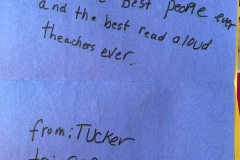 best people ever
and the best read aloud
theachers ever.
from: TUCKer
to: